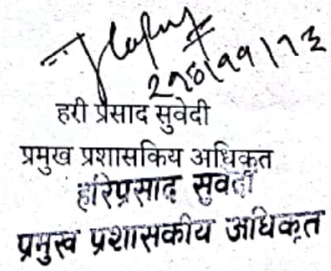 हरी प्रसाद सुवेदी
प्रमुख प्रशासकिय अधिकृत
हरिप्रसाद सुवेदी
प्रमुख प्रशासकीय अधिकृत